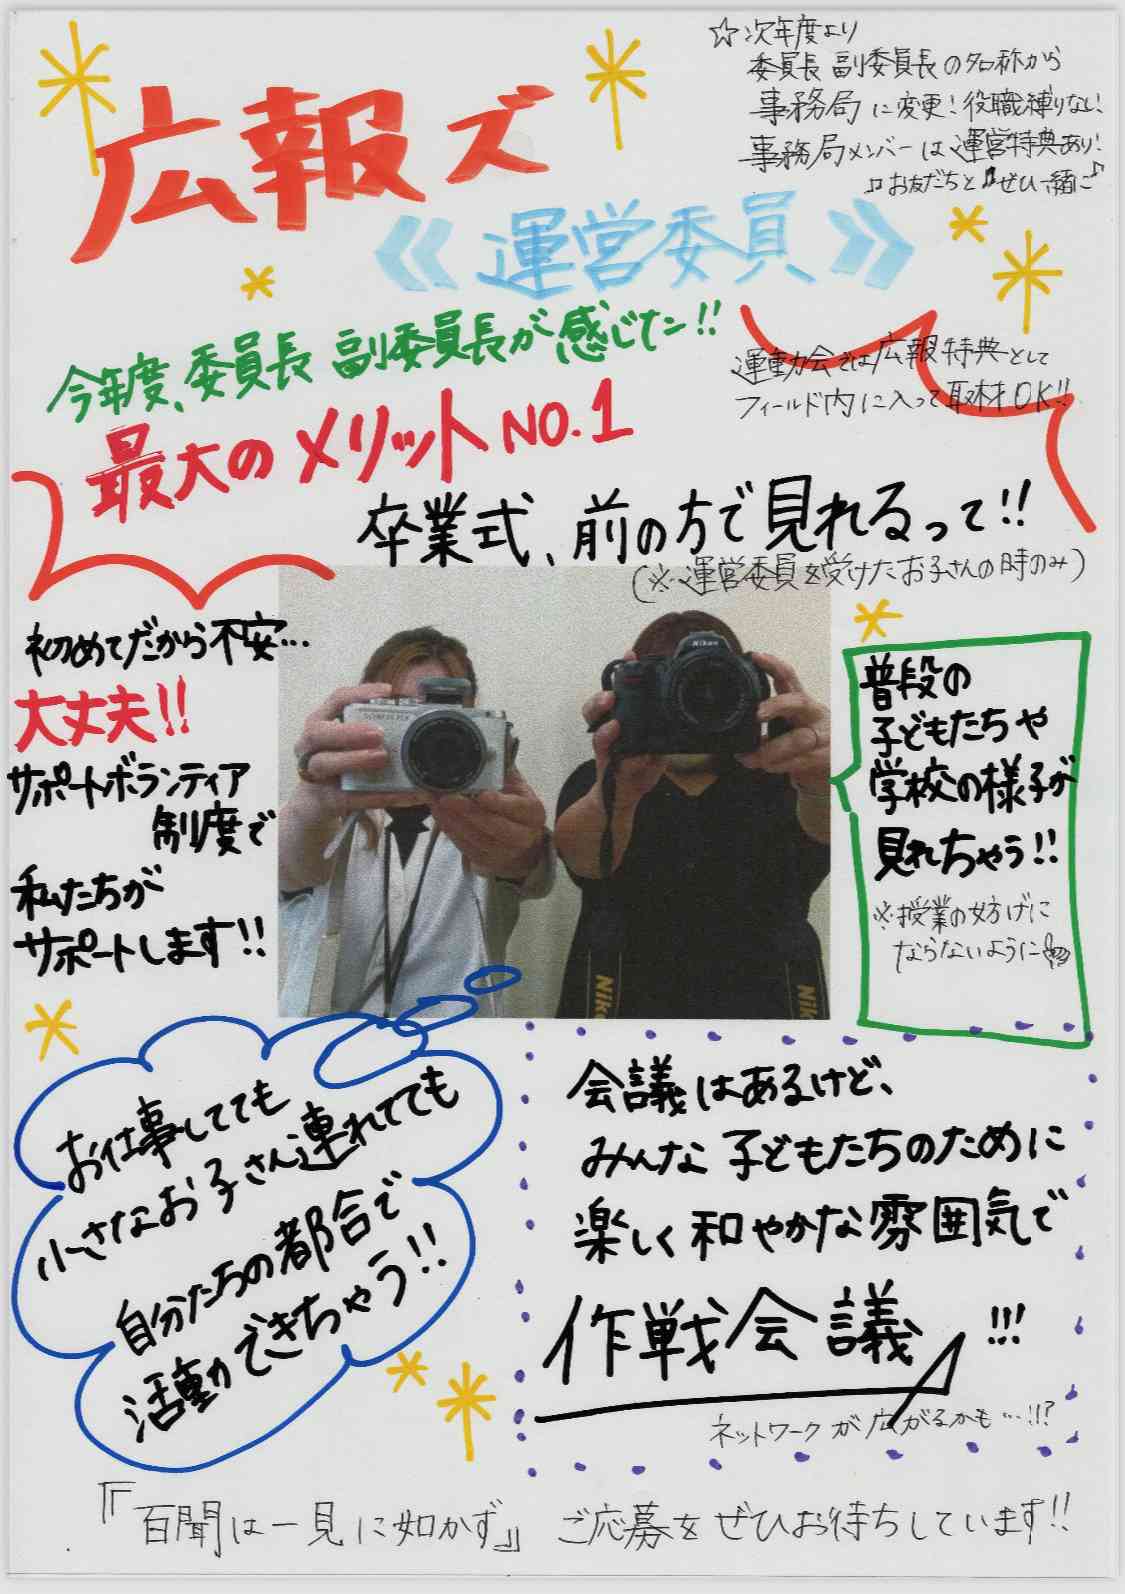 広報ズ
《運営委員》
☆次年度より
委員長 副委員長の名称から
事務局に変更!役職縛りない!
事務局メンバーは運営特典あり!
♫お友だちと♫ぜひ一緒に♪
今年度、委員長 副委員長が感じたン!!
最大のメリットNO.1
運動会では広報特典として
フィールド内に入って取材OK!!
卒業式、前の方で見れるって!!
(※運営委員を受けたお子さんの時のみ)
初めてだから不安…
大丈夫!!
サポートボランティア
制度で
私たちが
サポートします!!
Nikon
OLYMPUS PEN
Nikon
Nikon
普段の
子どもたちや
学校の様子が
見れちゃう!!
※授業の妨げに
ならないように
お仕事してても
小さなお子さん連れてても
自分たちの都合で
活動ができちゃう!!
会議はあるけど、
みんな子どもたちのために
楽しく和やかな雰囲気で
作戦会議!!!
ネットワークが広がるかも…!!?
『百聞は一見に如かず』 ご応募をぜひお待ちしています!!